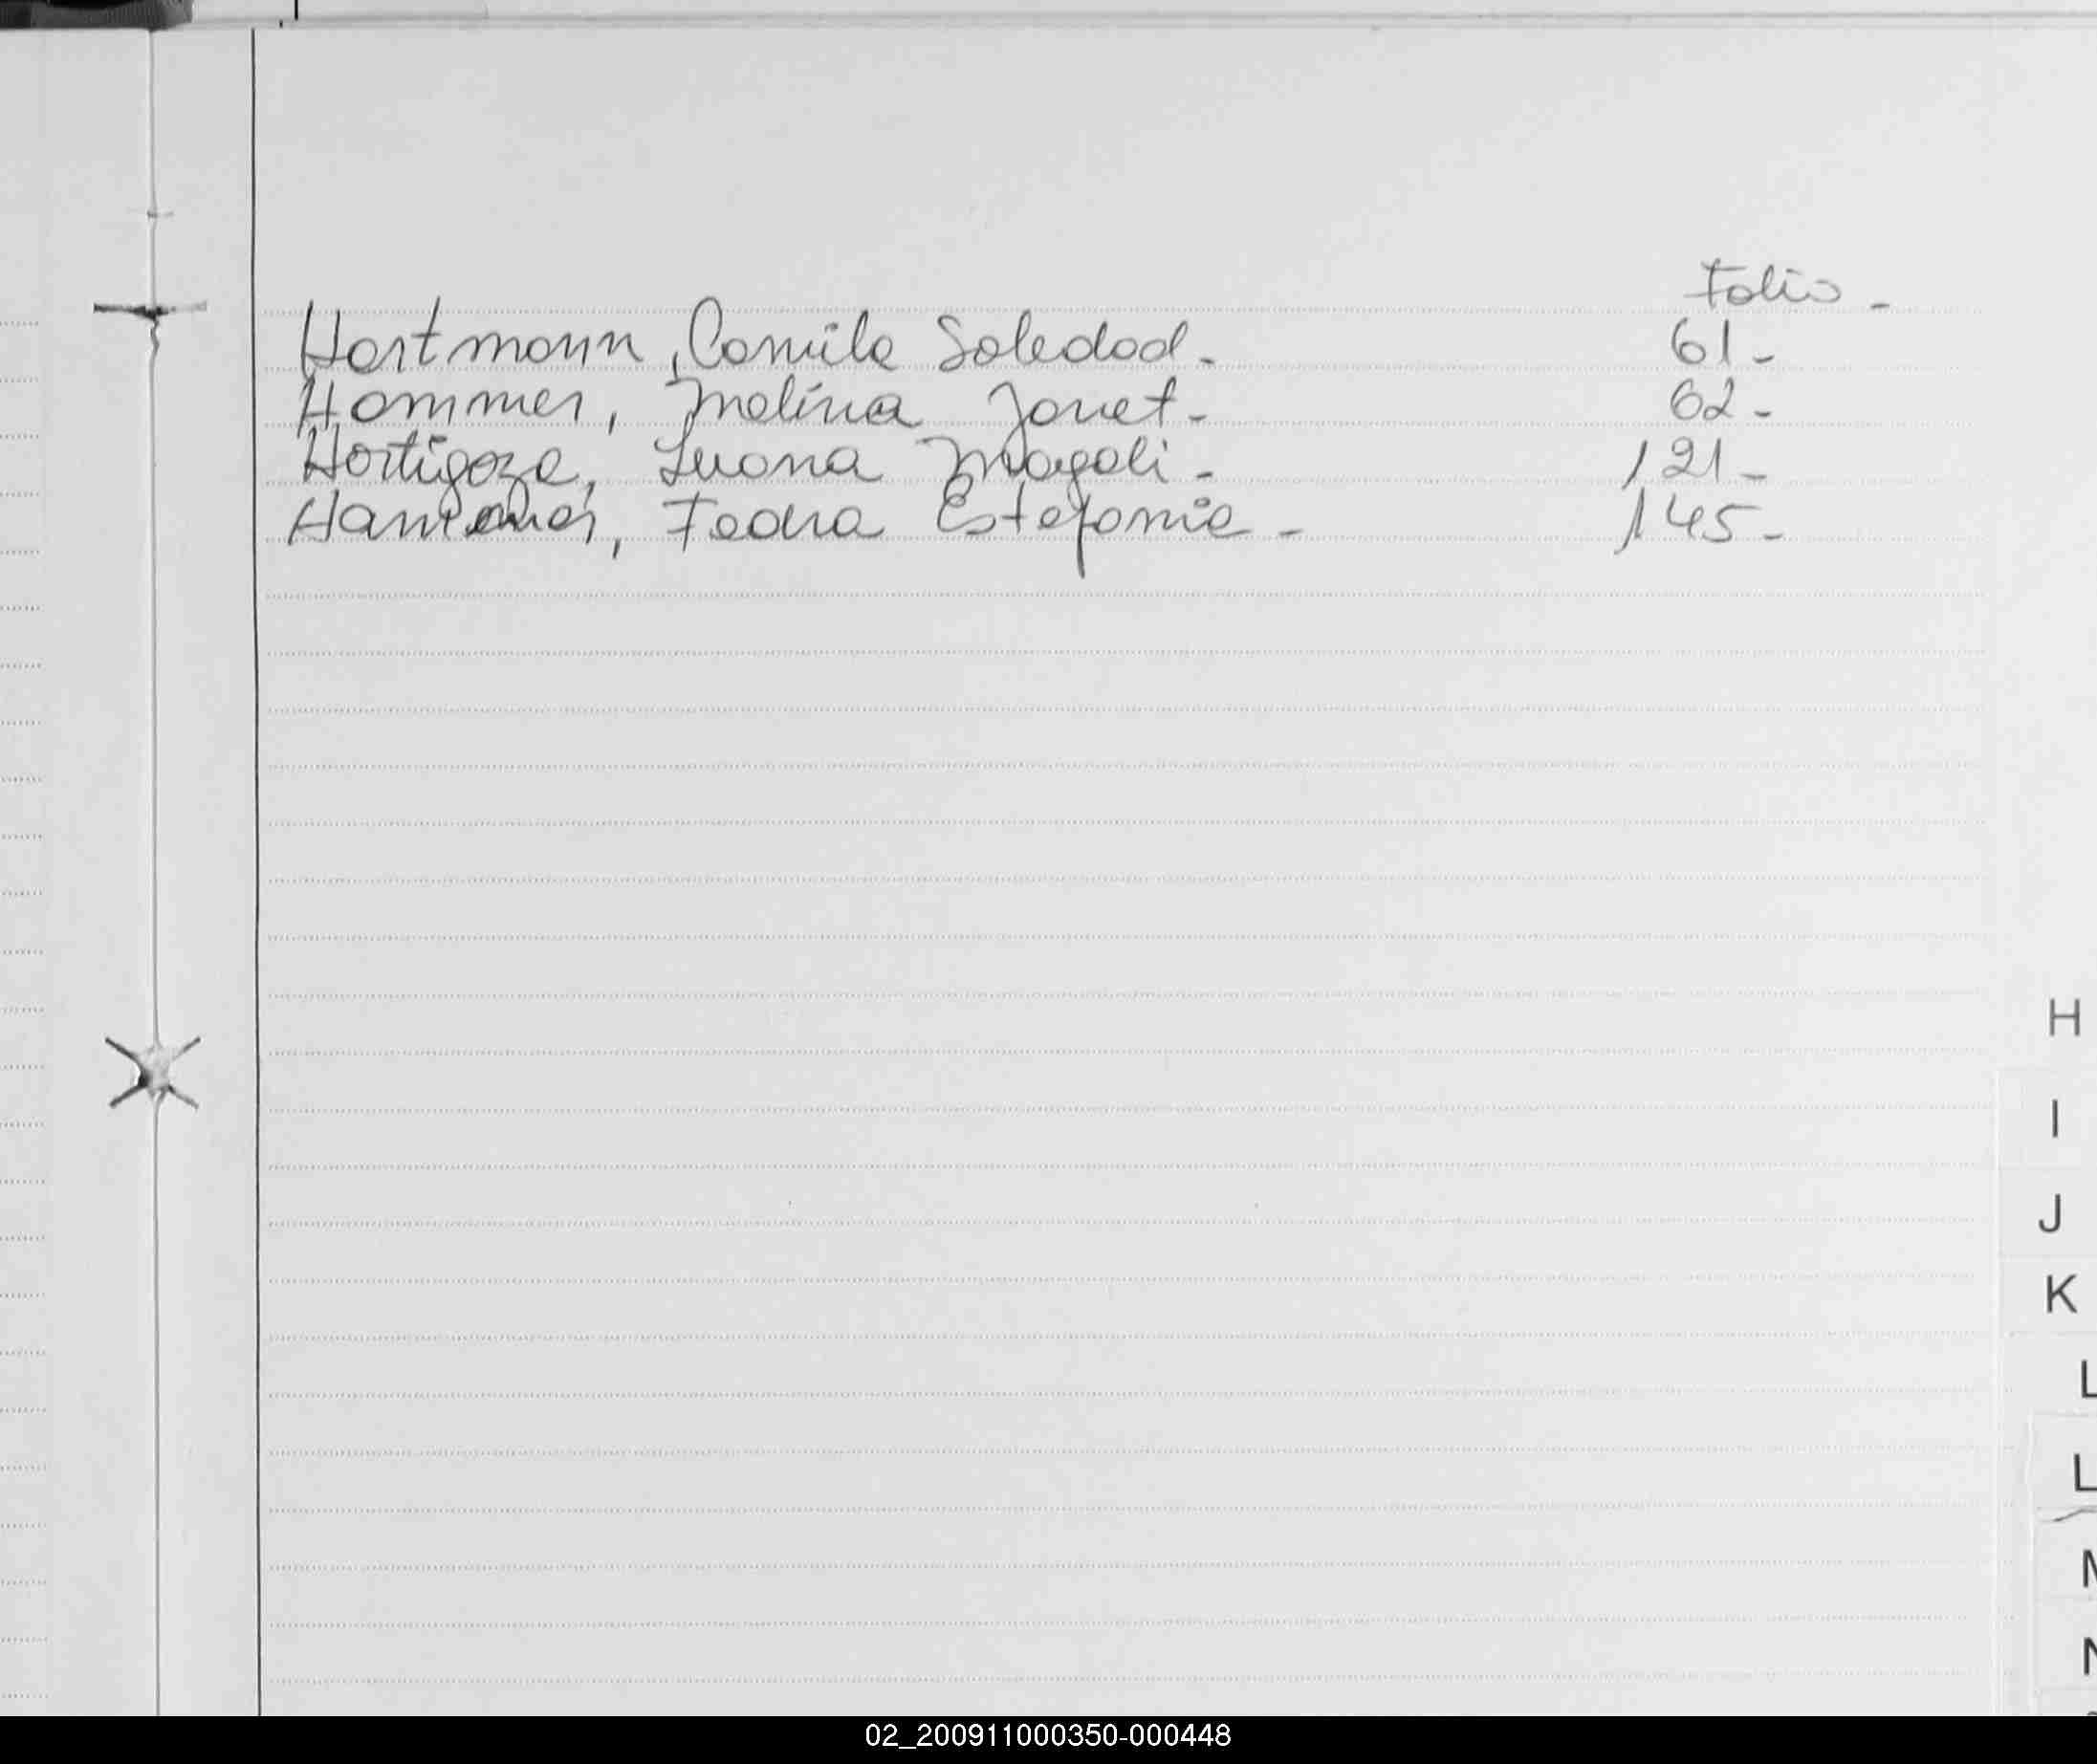 Folio -
Hartmann, Camila Soledad - 61 -
Hammer, Melina Janet - 62 -
Hortigoza, Luana Magali - 121 -
Fedra Estefania - 145 -
H
I
J
K
L
L
M
N
02_200911000350-000448